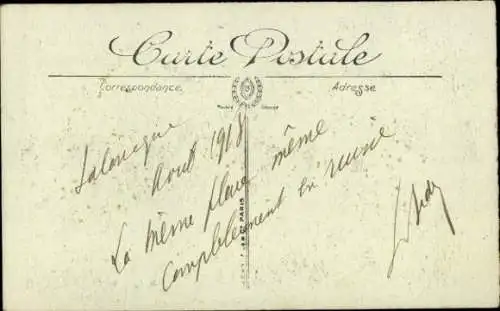 Carte Postale
Correspondance
Adresse
Août 1918
La même place même
complètement en ruine
PARIS